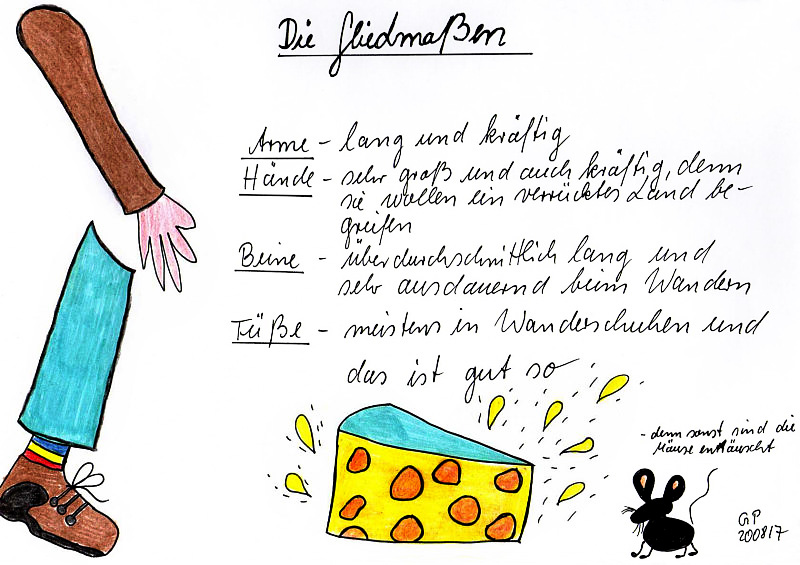 Die Gliedmaßen
Arme - lang und kräftig
Hände - sehr groß und auch kräftig, denn
sie wollen ein verrücktes Land be-
greifen
Beine - überdurchschnittlich lang und
sehr ausdauernd beim Wandern
Füße - meistens in Wanderschuhen und
das ist gut so
- denn sonst sind die
Mäuse enttäuscht
GP
2008/7